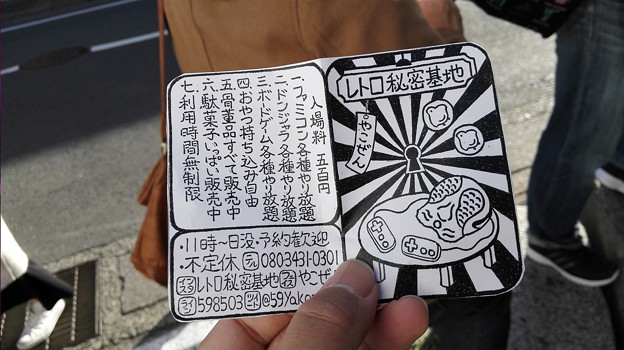 レトロ秘密基地
やこぜん
入場料 五百円
一、ファミコン各種やり放題
二、ドンジャラ各種やり放題
三、ボードゲーム各種やり放題
四、おやつ持ち込み自由
五、骨董品すべて販売中
六、駄菓子いっぱい販売中
七、利用時間無制限
・11時〜日没・予約歓迎
・不定休 0803431-0301
レトロ秘密基地 やこぜ
598503 @59Yako